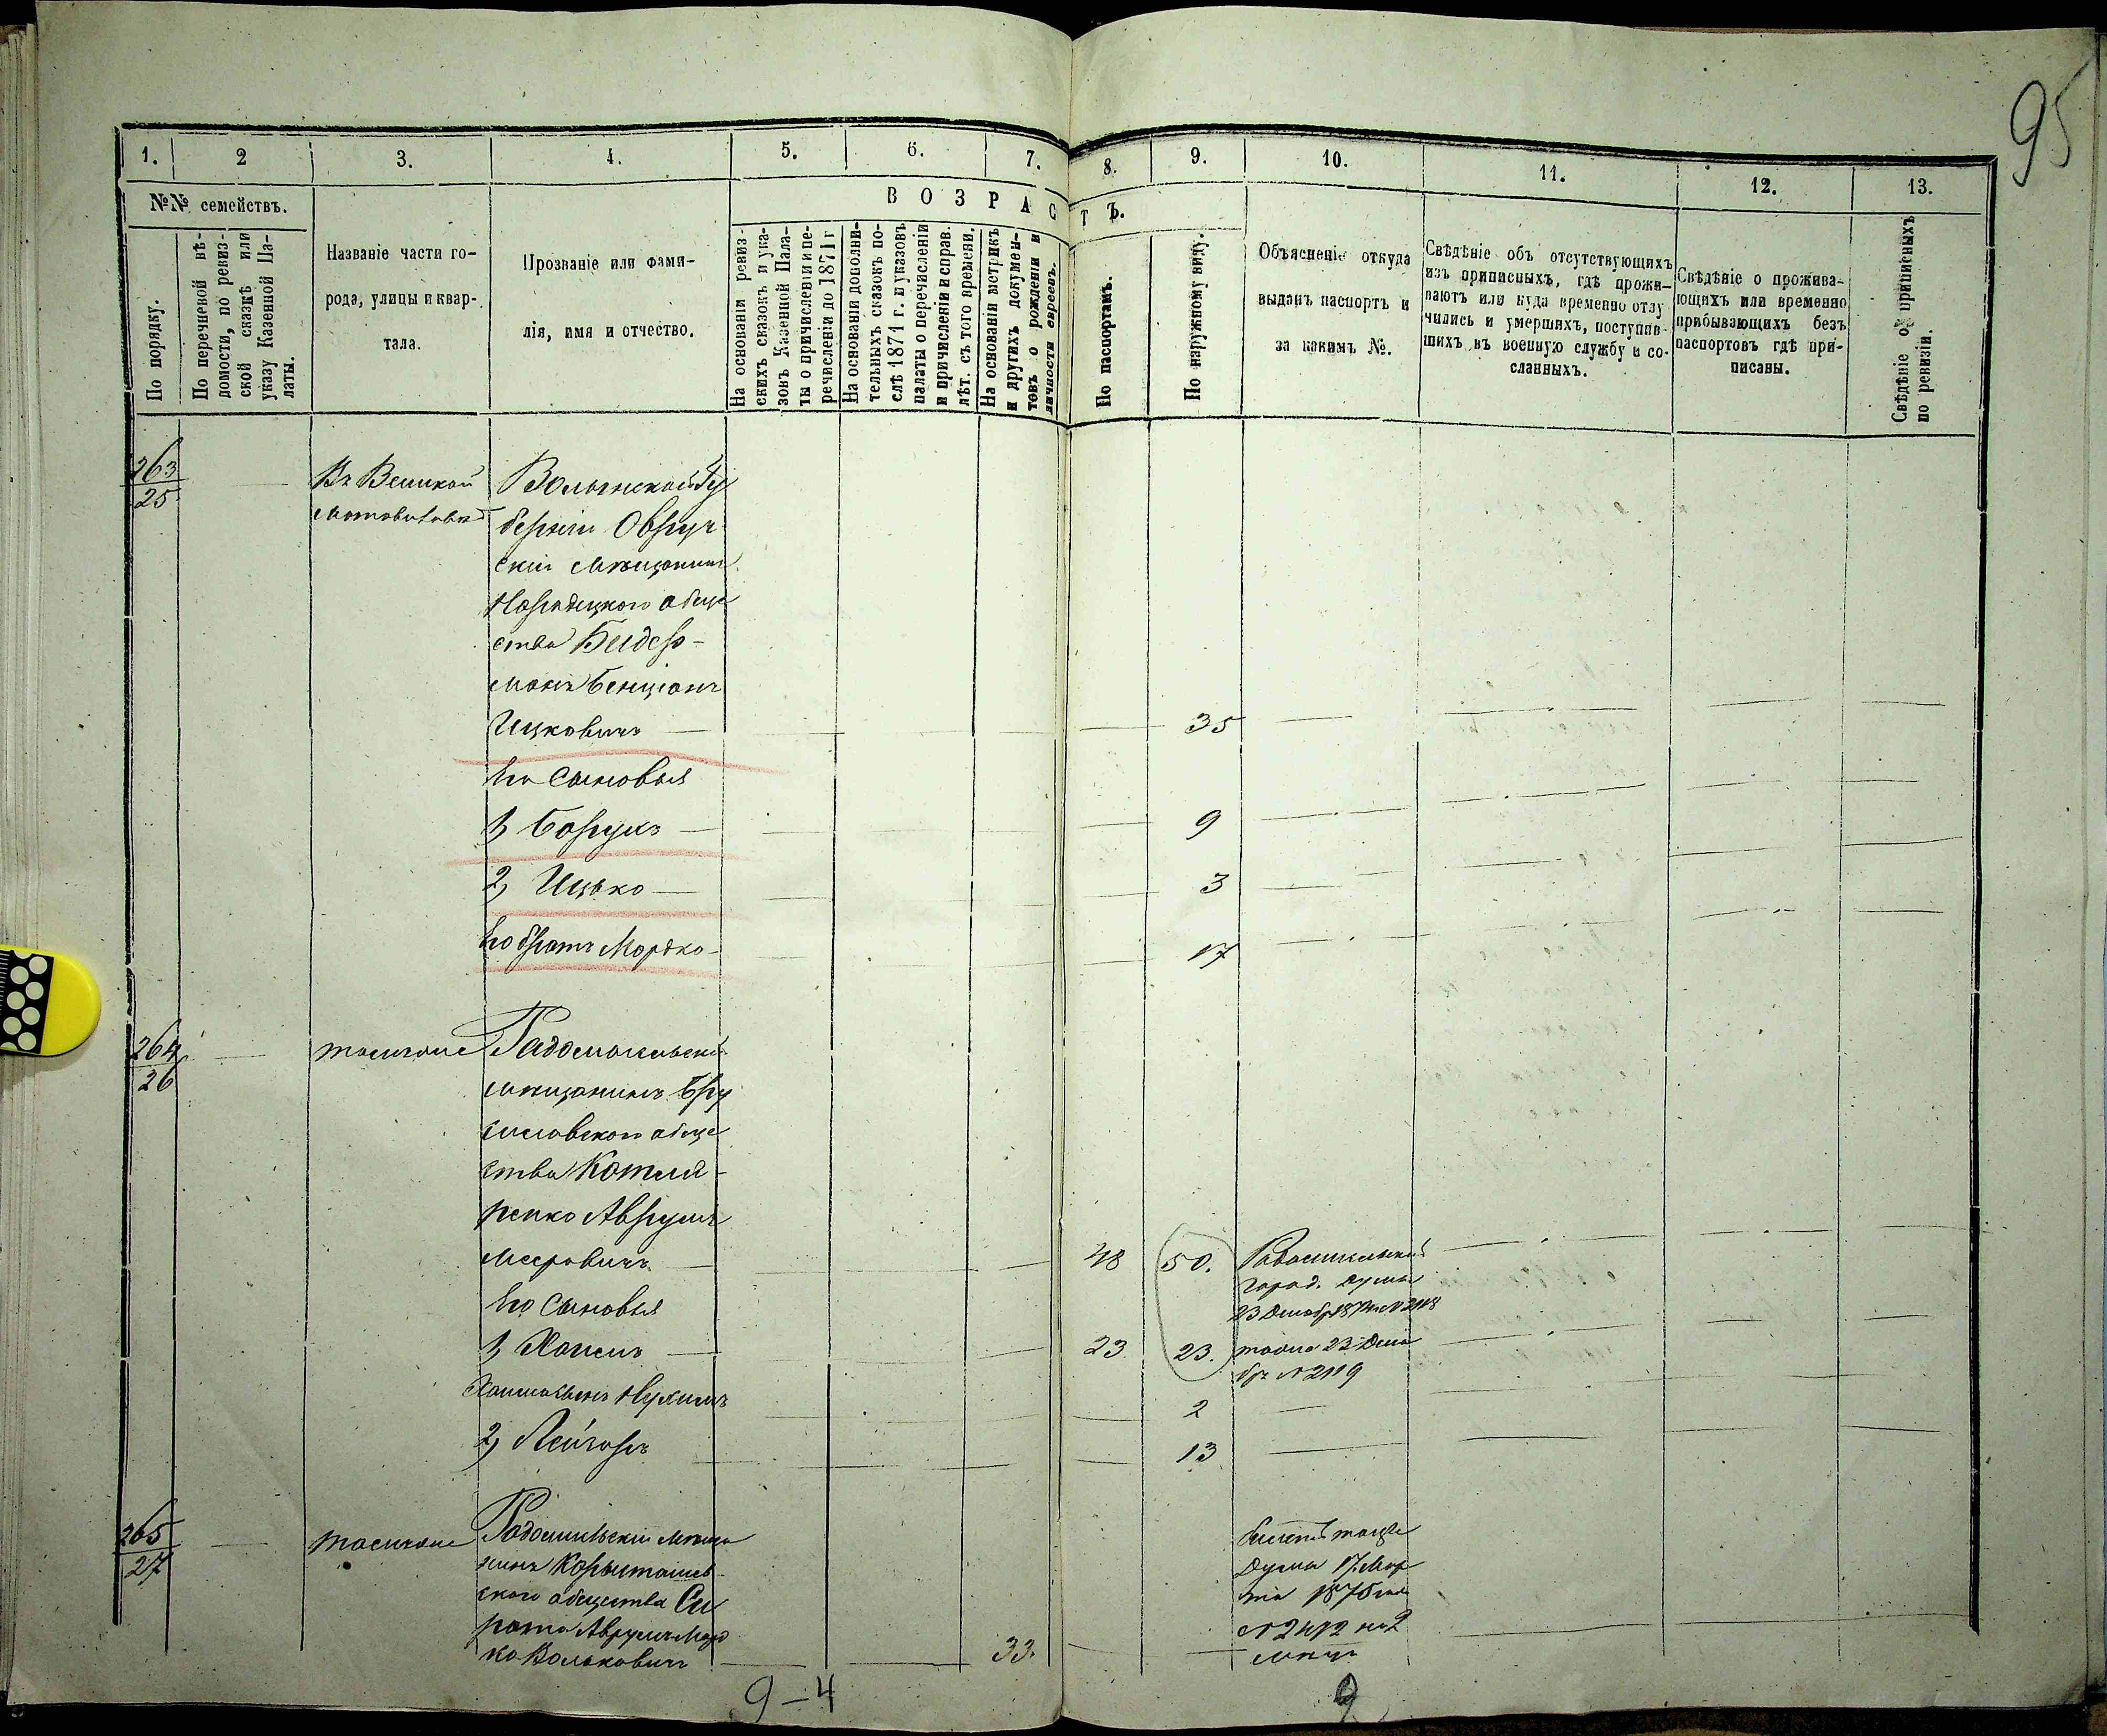 95
1. 2 3. 4. 5. 6. 7. 8. 9. 10. 11. 12. 13.
№№ семействъ.
ВОЗРАСТЪ.
По порядку.
По перечневой вѣ-
домости, по ревиз-
ской сказкѣ или
указу Казенной Па-
латы.
Названіе части го-
рода, улицы и квар-
тала.
Прозваніе или фами-
лія, имя и отчество.
На основаніи ревиз-
скихъ сказокъ и ука-
зовъ Казенной Пала-
ты о причисленіи и пе-
речисленіи до 1871 г
На основаніи дополни-
тельныхъ сказокъ по-
слѣ 1871 г. и указовъ
палаты о перечисленіи
и причисленіи и справ.
лѣт. съ того времени.
На основаніи метрикъ
и другихъ докумен-
товъ о рожденіи и
личности евреевъ.
По паспортамъ.
По наружному виду.
Объясненіе откуда
выданъ паспортъ и
за какимъ №.
Свѣдѣніе объ отсутствующихъ
изъ приписныхъ, гдѣ прожи-
ваютъ или куда временно отлу
чились и умершихъ, поступив-
шихъ въ военную службу и со-
сланныхъ.
Свѣдѣніе о прожива-
ющихъ или временно
прибывающихъ безъ
паспортовъ гдѣ при-
писаны.
Свѣдѣніе объ приписныхъ
по ревизіи.
263
25
Въ Великой
Мотовиловкѣ
Волынской Гу
берніи Овруч
скій мѣщанинъ
Народицкого обще
ства Бидер-
манъ Бенціонъ
Ицковичъ 35
Его сыновья
1, Борухъ 9
2, Ицько 3
Его братъ Мордко 17
264
26
тамъ же
Радомысльскій
мѣщанинъ Бру
силовского обще
ства Котля-
ренко Аврумъ
Мееровичъ 48 50. Радомысльской
город. Думы
23 Декабр 187 г. № 2118
Его сыновья
1, Хаимъ 23 23. тоже 23 Дека
бр. № 2119
Хаима сынъ Нухимъ 2
2, Лейзоръ 13
265
27
тамъ же
Радомысльскій мѣща
нинъ Корытищев-
ского общества Си
рота Аврумъ Морд
ко Вольковичъ 33.
билетъ тойже
Думы 17 Мар
та 1875 года
№ 2412 на 2
мѣсц.
9-4
9